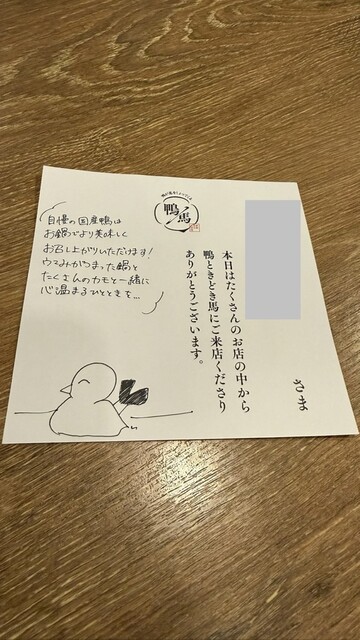 さま
本日はたくさんのお店の中から
鴨ときどき馬にご来店くださり
ありがとうございます。
鴨馬
自慢の国産鴨は
お鍋でより美味しく
お召し上がりいただけます!
ウマみがつまった鍋と
たくさんのカモと一緒に
心温まるひとときを…